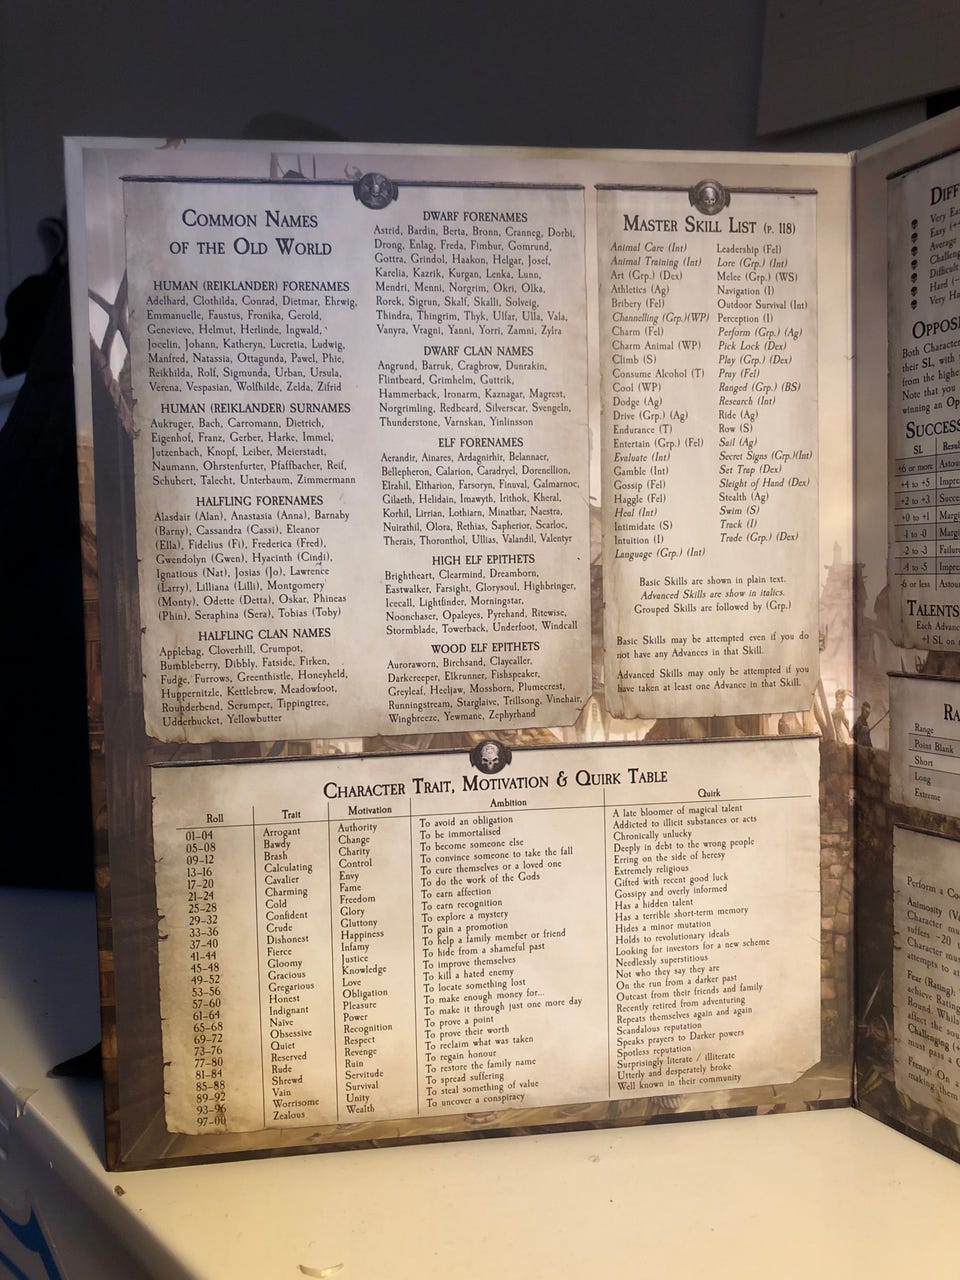 Common Names
of the Old World
HUMAN (REIKLANDER) FORENAMES
Adelhard, Clothilda, Conrad, Dietmar, Ehrwig,
Emmanuelle, Faustus, Fronika, Gerold,
Genevieve, Helmut, Herlinde, Ingwald,
Jocelin, Johann, Katheryn, Lucretia, Ludwig,
Manfred, Natassia, Ottagunda, Pawel, Phie,
Reikhilda, Rolf, Sigmunda, Urban, Ursula,
Verena, Vespasian, Wolfhilde, Zelda, Zifrid
HUMAN (REIKLANDER) SURNAMES
Aukruger, Bach, Carromann, Dietrich,
Eigenhof, Franz, Gerber, Harke, Immel,
Jutzenbach, Knopf, Leiber, Meierstadt,
Naumann, Ohrstenfurter, Pfaffbacher, Reif,
Schubert, Talecht, Unterbaum, Zimmermann
HALFLING FORENAMES
Alasdair (Alan), Anastasia (Anna), Barnaby
(Barny), Cassandra (Cassi), Eleanor
(Ella), Fidelius (Fi), Frederica (Fred),
Gwendolyn (Gwen), Hyacinth (Cindi),
Ignatious (Nat), Josias (Jo), Lawrence
(Larry), Lilliana (Lilli), Montgomery
(Monty), Odette (Detta), Oskar, Phineas
(Phin), Seraphina (Sera), Tobias (Toby)
HALFLING CLAN NAMES
Applebag, Cloverhill, Crumpot,
Bumbleberry, Dibbly, Fatside, Firken,
Fudge, Furrows, Greenthistle, Honeyheld,
Huppernitzle, Kettlebrew, Meadowfoot,
Rounderbend, Scrumper, Tippingtree,
Udderbucket, Yellowbutter
DWARF FORENAMES
Astrid, Bardin, Berta, Bronn, Cranneg, Dorbi,
Drong, Enlag, Freda, Fimbur, Gomrund,
Gottra, Grindol, Haakon, Helgar, Josef,
Karelia, Kazrik, Kurgan, Lenka, Lunn,
Mendri, Menni, Norgrim, Okri, Olka,
Rorek, Sigrun, Skalf, Skalli, Solveig,
Thindra, Thingrim, Thyk, Ulfar, Ulla, Vala,
Vanyra, Vragni, Yanni, Yorri, Zamni, Zylra
DWARF CLAN NAMES
Angrund, Barruk, Cragbrow, Dunrakin,
Flintbeard, Grimhelm, Guttrik,
Hammerback, Ironarm, Kaznagar, Magrest,
Norgrimling, Redbeard, Silverscar, Svengeln,
Thunderstone, Varnskan, Yinlinsson
ELF FORENAMES
Aerandir, Ainares, Ardagnirhir, Belannaer,
Bellepheron, Calarion, Caradryel, Dorenellion,
Elrahil, Eltharion, Farsoryn, Finuval, Galmarnoc,
Gilaeth, Helidain, Imawyth, Irithok, Kheral,
Korhil, Lirrian, Lothiarn, Minathar, Naestra,
Nuirathil, Olora, Rethias, Sapherior, Scarloc,
Therais, Thoronthol, Ullias, Valandil, Valentyr
HIGH ELF EPITHETS
Brightheart, Clearmind, Dreamborn,
Eastwalker, Farsight, Glorysoul, Highbringer,
Icecall, Lightfinder, Morningstar,
Noonchaser, Opaleyes, Pyrehand, Ritewise,
Stormblade, Towerback, Underfoot, Windcall
WOOD ELF EPITHETS
Auroraworn, Birchsand, Claycaller,
Darkcreeper, Elkrunner, Fishspeaker,
Greyleaf, Heeljaw, Mossborn, Plumecrest,
Runningstream, Starglaive, Trillsong, Vinehair,
Wingbreeze, Yewmane, Zephyrhand
Master Skill List (p. 118)
Animal Care (Int)
Animal Training (Int)
Art (Grp.) (Dex)
Athletics (Ag)
Bribery (Fel)
Channelling (Grp.)(WP)
Charm (Fel)
Charm Animal (WP)
Climb (S)
Consume Alcohol (T)
Cool (WP)
Dodge (Ag)
Drive (Grp.) (Ag)
Endurance (T)
Entertain (Grp.) (Fel)
Evaluate (Int)
Gamble (Int)
Gossip (Fel)
Haggle (Fel)
Heal (Int)
Intimidate (S)
Intuition (I)
Language (Grp.) (Int)
Leadership (Fel)
Lore (Grp.) (Int)
Melee (Grp.) (WS)
Navigation (I)
Outdoor Survival (Int)
Perception (I)
Perform (Grp.) (Ag)
Pick Lock (Dex)
Play (Grp.) (Dex)
Pray (Fel)
Ranged (Grp.) (BS)
Research (Int)
Ride (Ag)
Row (S)
Sail (Ag)
Secret Signs (Grp.)(Int)
Set Trap (Dex)
Sleight of Hand (Dex)
Stealth (Ag)
Swim (S)
Track (I)
Trade (Grp.) (Dex)
Basic Skills are shown in plain text.
Advanced Skills are show in italics.
Grouped Skills are followed by (Grp.)
Basic Skills may be attempted even if you do
not have any Advances in that Skill.
Advanced Skills may only be attempted if you
have taken at least one Advance in that Skill.
Character Trait, Motivation & Quirk Table
Roll Trait Motivation Ambition Quirk
01–04 Arrogant Authority To avoid an obligation A late bloomer of magical talent
05–08 Bawdy Change To be immortalised Addicted to illicit substances or acts
09–12 Brash Charity To become someone else Chronically unlucky
13–16 Calculating Control To convince someone to take the fall Deeply in debt to the wrong people
17–20 Cavalier Envy To cure themselves or a loved one Erring on the side of heresy
21–24 Charming Fame To do the work of the Gods Extremely religious
25–28 Cold Freedom To earn affection Gifted with recent good luck
29–32 Confident Glory To earn recognition Gossipy and overly informed
33–36 Crude Gluttony To explore a mystery Has a hidden talent
37–40 Dishonest Happiness To gain a promotion Has a terrible short-term memory
41–44 Fierce Infamy To help a family member or friend Hides a minor mutation
45–48 Gloomy Justice To hide from a shameful past Holds to revolutionary ideals
49–52 Gracious Knowledge To improve themselves Looking for investors for a new scheme
53–56 Gregarious Love To kill a hated enemy Needlessly superstitious
57–60 Honest Obligation To locate something lost Not who they say they are
61–64 Indignant Pleasure To make enough money for... On the run from a darker past
65–68 Naive Power To make it through just one more day Outcast from their friends and family
69–72 Obsessive Recognition To prove a point Recently retired from adventuring
73–76 Quiet Respect To prove their worth Repeats themselves again and again
77–80 Reserved Revenge To reclaim what was taken Scandalous reputation
81–84 Rude Ruin To regain honour Speaks prayers to Darker powers
85–88 Shrewd Servitude To restore the family name Spotless reputation
89–92 Vain Survival To spread suffering Surprisingly literate / illiterate
93–96 Worrisome Unity To steal something of value Utterly and desperately broke
97–00 Zealous Wealth To uncover a conspiracy Well known in their community
Very
Easy
Average
Difficult
Hard
Very
Both Character
their SL, with
from the highe
Note that you
winning an Op
Success
SL
+6 or more
+4 to +5
+2 to +3
+0 to +1
-1 to -0
-2 to -3
-4 to -5
-6 or less
Talents
Each Advanc
+1 SL on
Range
Point Blank
Short
Long
Extreme
Perform a Co
Animosity
Character mu
suffers -20
Character
attempts to
Fear (Rating):
achieve Rating
Round. Whils
affect the
Challenging
must pass a
Frenzy: On a
making them